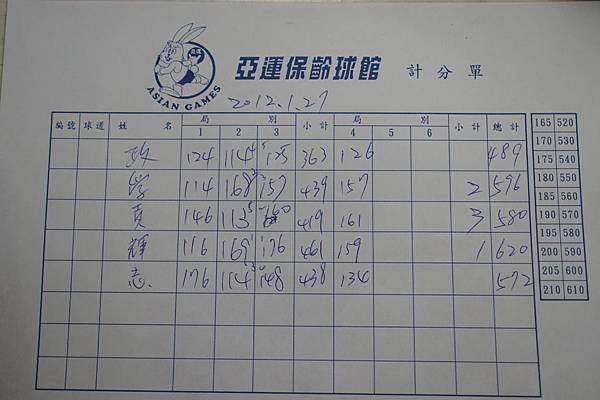 ASIAN GAMES
亞運保齡球館 計分單
2012.1.27
編號 球道 姓名 局別 小計 局別 小計 總計
1 2 3 4 5 6
政 124 114 125 363 126 489
学 114 168 157 439 157 2 596
146 113 160 419 161 3 580
輝 116 169 176 461 159 1 620
志 176 114 148 438 134 572
165 520
170 530
175 540
180 550
185 560
190 570
195 580
200 590
205 600
210 610